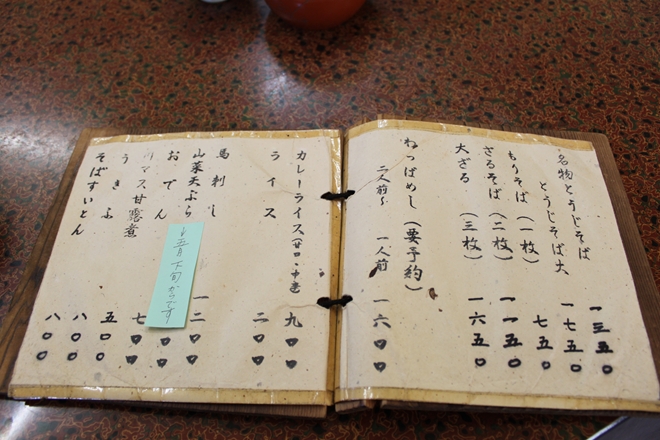 名物とうじそば 一三五〇
とうじそば大 一七五〇
もりそば(一枚) 七五〇
ざるそば(二枚) 一一五〇
大ざる(三枚) 一六五〇
ねっぱめし(要予約)
二人前〜 一人前 一六〇〇
カレーライス(甘口・中辛) 九〇〇
ライス 二〇〇
馬刺し 一二〇〇
山菜天ぷら 〇〇
↓五月下旬からです
おでん 七〇〇
川マス甘露煮 五〇〇
うきふ 八〇〇
そばすいとん 八〇〇